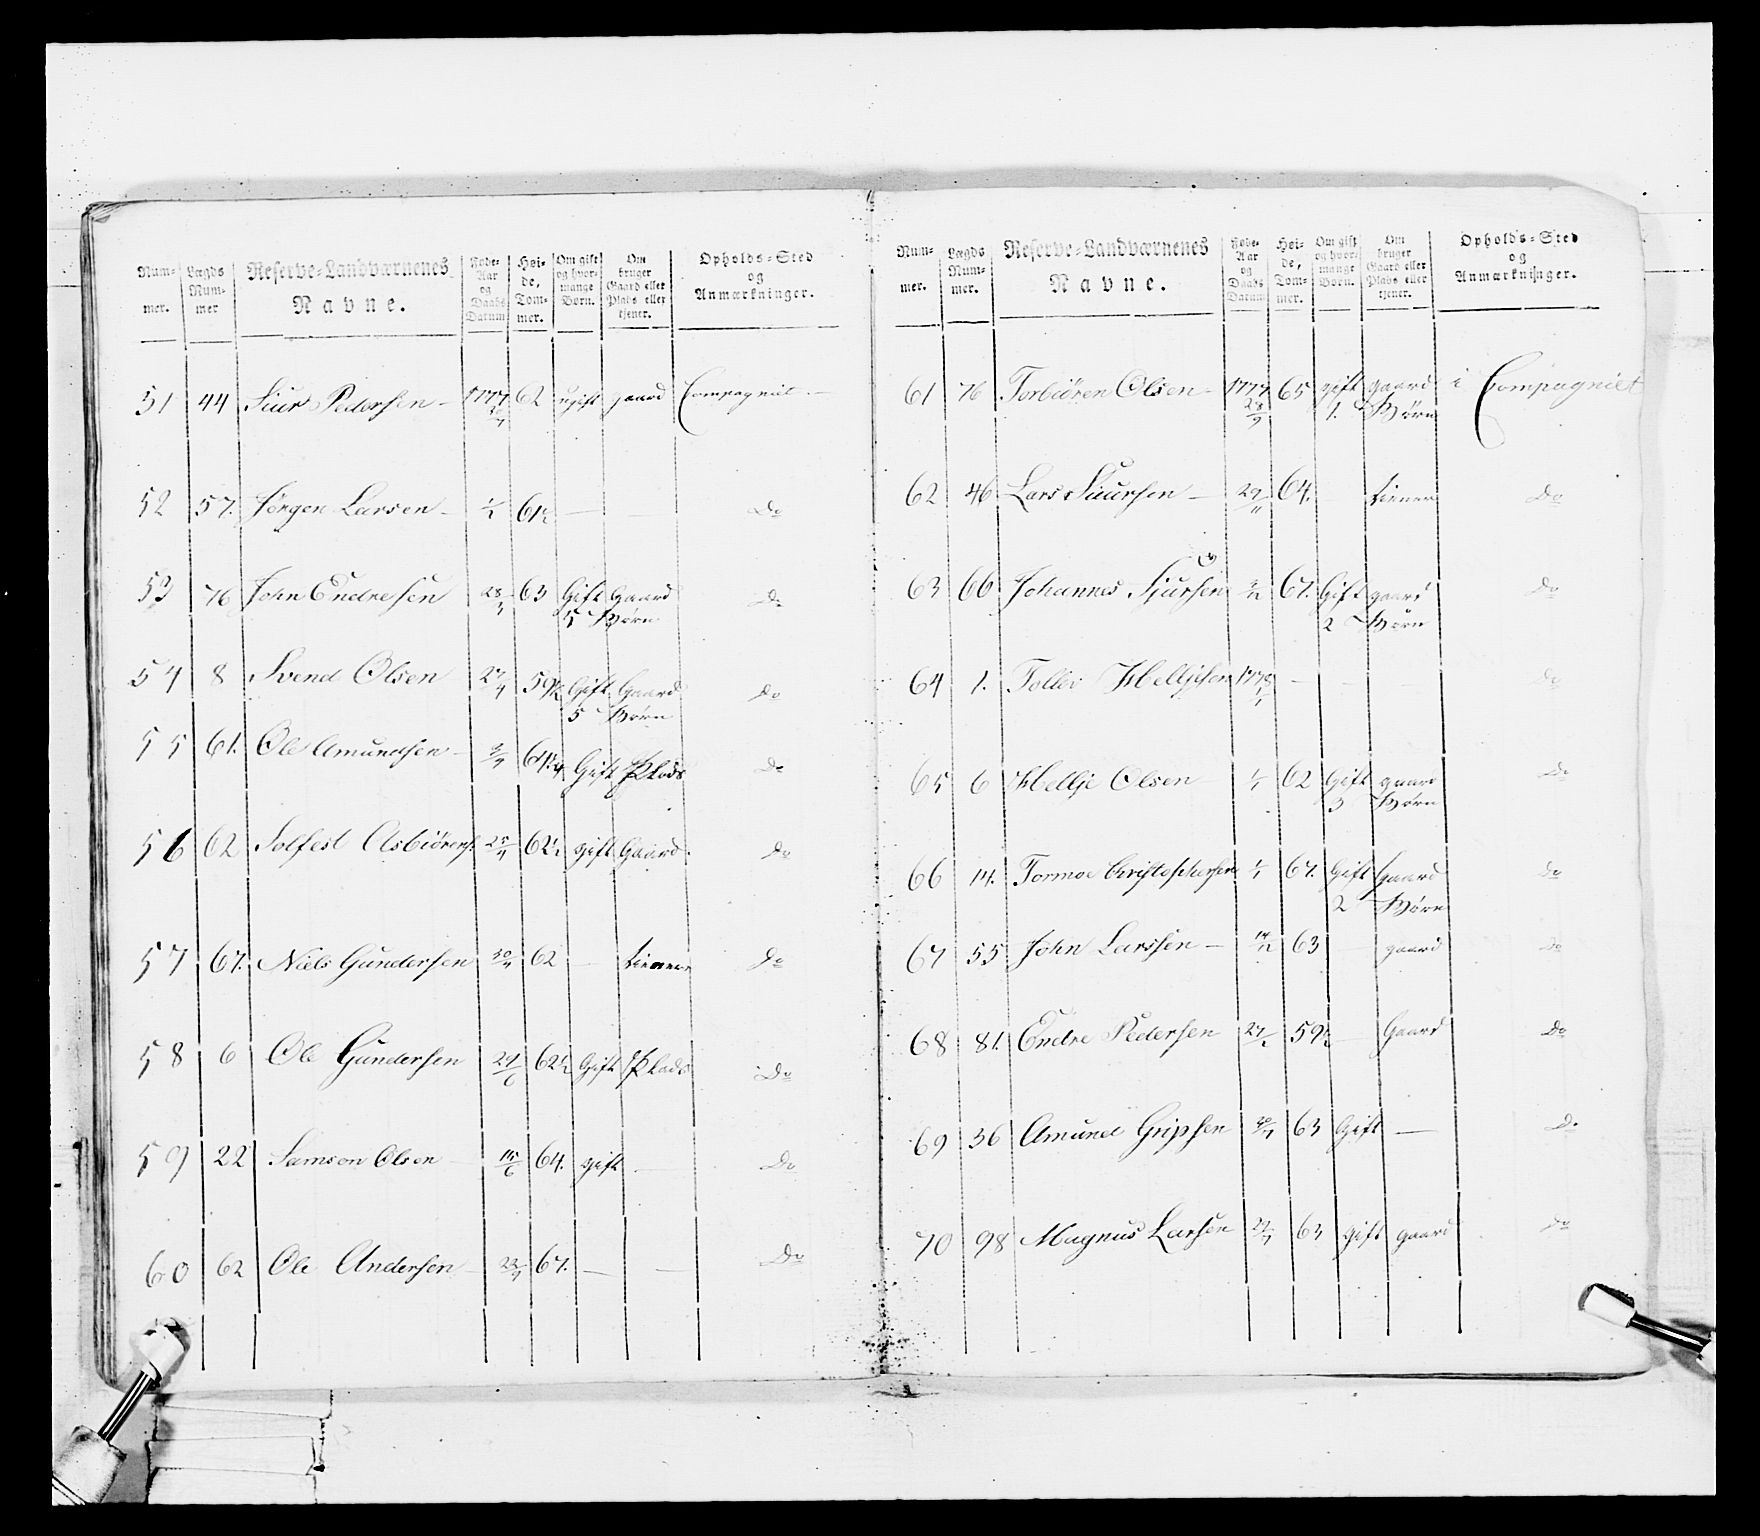 Num-
mer. Lægds
Num-
mer Reserve-Landværnenes
Navne. Føde-
Aar
og
Daabs
Datum Høi-
de,
Tom-
mer. Om gift
og hvor-
mange
Børn. Om
bruger
Gaard eller
Plads eller
tjener. Opholds-Sted
og
Anmærkninger.
51 44 Siur Pedersen 1777 62 ugift gaard Compagniet
52 57. Jørgen Larsen 61½ — — Do
53 76 John Endresen 28 63 Gift Gaard Do
5 Børn
54 8 Svend Olsen 27/4 59½ Gift Gaard Do
5 Børn
55 61. Ole Amundsen 64¼ Gift Plads Do
56 62 Solfest Asbiørens. 25/4 62½ gift Gaard Do
57 67. Niels Gundersen 30/4 62 — tiener Do
58 6 Ole Gundersen 24/6 62½ Gift Plads Do
59 22 Samson Olsen 15/6 64. gift — Do
60 62 Ole Andersen 22 67. — — Do
Num-
mer. Lægds
Num-
mer. Reserve-Landværnenes
Navne. Føde-
Aar
og
Daabs
Datum Høi-
de,
Tom-
mer. Om gift
og hvor-
mange
Børn. Om
bruger
Gaard eller
Plads eller
tjener. Opholds-Sted
og
Anmærkninger.
61 76 Torbiören Olsen 1777 65 gift gaard i Compagniet
28/9 1. Børn
62 46 Lars Siursen — 29/11 64. tiener Do
63 66 Johannes Sjursen 67. Gift gaard Do
2 Børn
64 1. Tollev Helljesen 1778 — — — Do
65 6 Hellje Olsen 1/1 62 Gift gaard Do
3 Børn
66 14. Tormoe Christophersen 1/1 67. Gift Gaard Do
2 Børn
67 55 John Larssen — 14/12 63 — gaard Do
68 81. Endre Pedersen 27 59½ — Gaard Do
69 36 Amund Gripsen 30 63 Gift — Do
70 98 Magnus Larsen 63 gift gaard Do